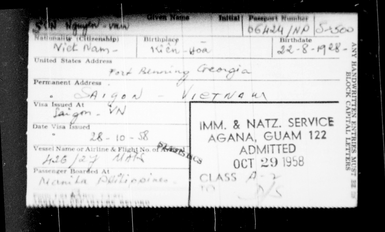 SON Nguyen - van
Given Name Initial Passport Number
06424/NP
Nationality (Citizenship) Birthplace Birthdate
Viet Nam - Kien-hoa 22-8-1928-
United States Address
Fort Benning Georgia
Permanent Address
SAIGON - VIETNAM
Visa Issued at
Saigon - VN
Date Visa Issued
28-10-58
Vessel Name or Airline & Flight No. of Arrival
Passenger Boarded At
Manila Philippines
IMM. & NATZ. SERVICE
AGANA, GUAM 122
ADMITTED
OCT 29 1958
CLASS A-2
TO D/S
ANY HANDWRITTEN ENTRIES MUST BE IN
BLOCK CAPITAL LETTERS